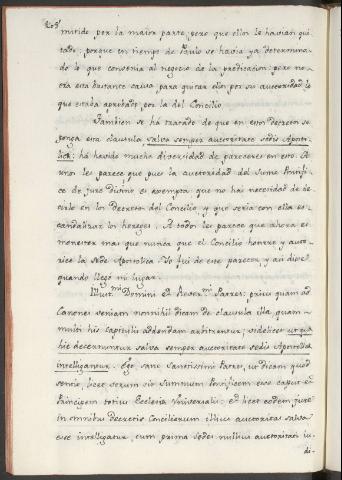 208
metido por la maior parte, pero que ellos le havian qui-
tado; porque en tiempo de Paulo se havia ya determina-
do lo que convenia al negocio de la predicacion; pero no
era esta bastante causa para quitar ellos por su auctoridad lo
que estaba aprobado por la del Concilio.
Tambien se ha tratado de que en estos decretos se
ponga esta clausula salva semper auctoritate sedis Aposto-
lica: há havido mucha diversidad de pareceres en esto. A
unos les parece que pues la auctoridad del Sumo Pontifi-
ce de jure Divino es exempta que no hay necesidad de de-
cirlo en los Decretos del Concilio, y que seria con ella es-
candalizar los hereges. A todos les parece que ahora es
menester mas que nunca que el Concilio honrre y auto-
rice la Sede Apostolica. Yo fui de este parecer, y asi dixe
quando llegó mi lugar.
Illust.mi Domini et Rever.mi Patres: prius quam ad
Canones veniam nonnihil dicam de clausula illa, quam
multi his capitulis addendam arbitrantur, videlicet ut quæ
hic decernuntur salva semper auctoritate sedis Apostolicæ
intelligantur. Ego, sane Sanctissimi Patres, ut dicam quod
sentio, licet verum sit Summum Pontificem esse caput et
Principem totius Ecclesiæ Universalis: et licet eodem jure
in omnibus decretis Conciliorum illius auctoritas salva
esse intelligatur, cum prima sedes nullius auctoritati iu-
di-